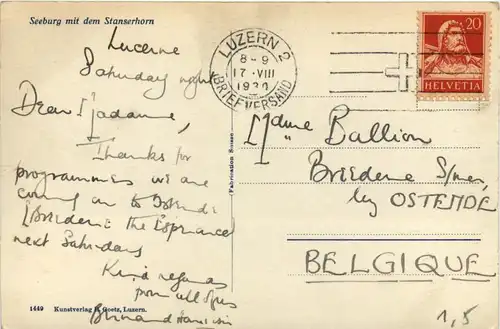 Seeburg mit dem Stanserhorn
Lucerne
Saturday night
Dear Madame,
Thanks for
programmes we are
coming on to Ostende
(Bredene) the Esperance
next Saturday
Kind regards
from all of us
Bernard
1449 Kunstverlag E. Goetz, Luzern.
Fabrication Suisse
LUZERN 2
8-9
17·VIII
BRIEFVERSAND
20
HELVETIA
Mdme Ballion
Breedene S/mer,
by OSTENDE
BELGIQUE
1,5